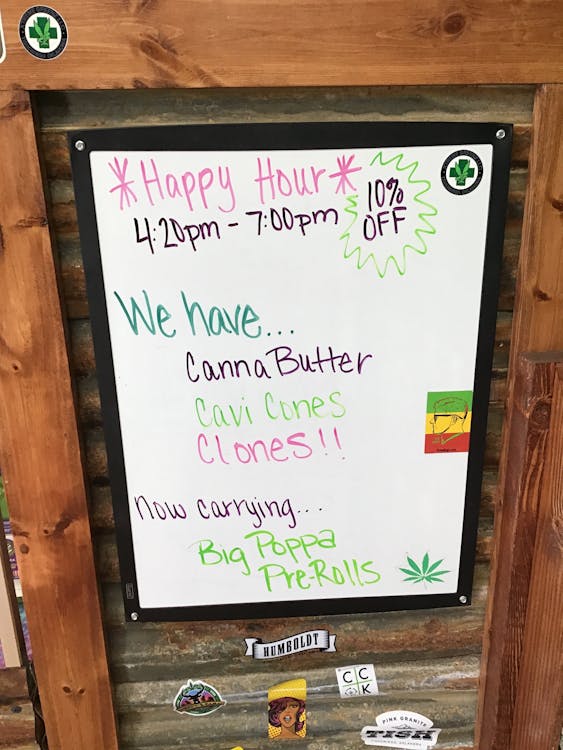 *Happy Hour*
4:20pm - 7:00pm
10%
OFF
We have...
CannaButter
Cavi Cones
Clones!!
Now carrying...
Big Poppa
Pre-Rolls
HUMBOLDT
C C
K
PINK GRANITE
TISH